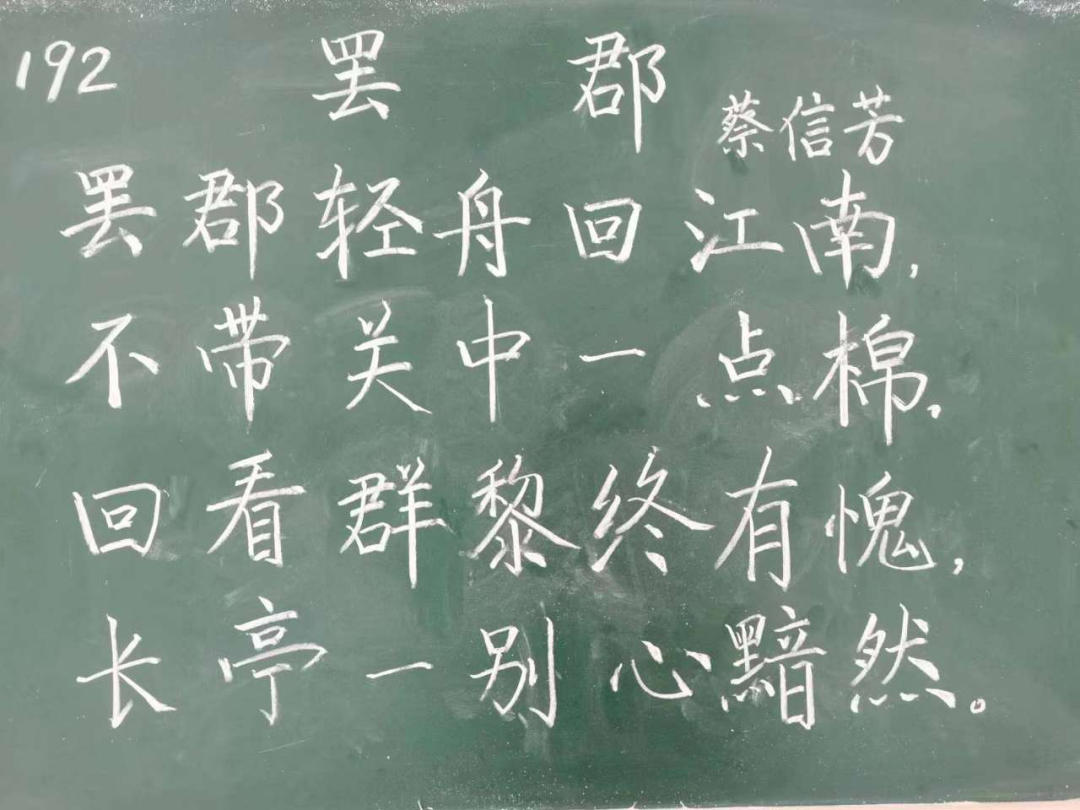 192 罢郡
蔡信芳
罢郡轻舟回江南,
不带关中一点棉,
回看群黎终有愧,
长亭一别心黯然。